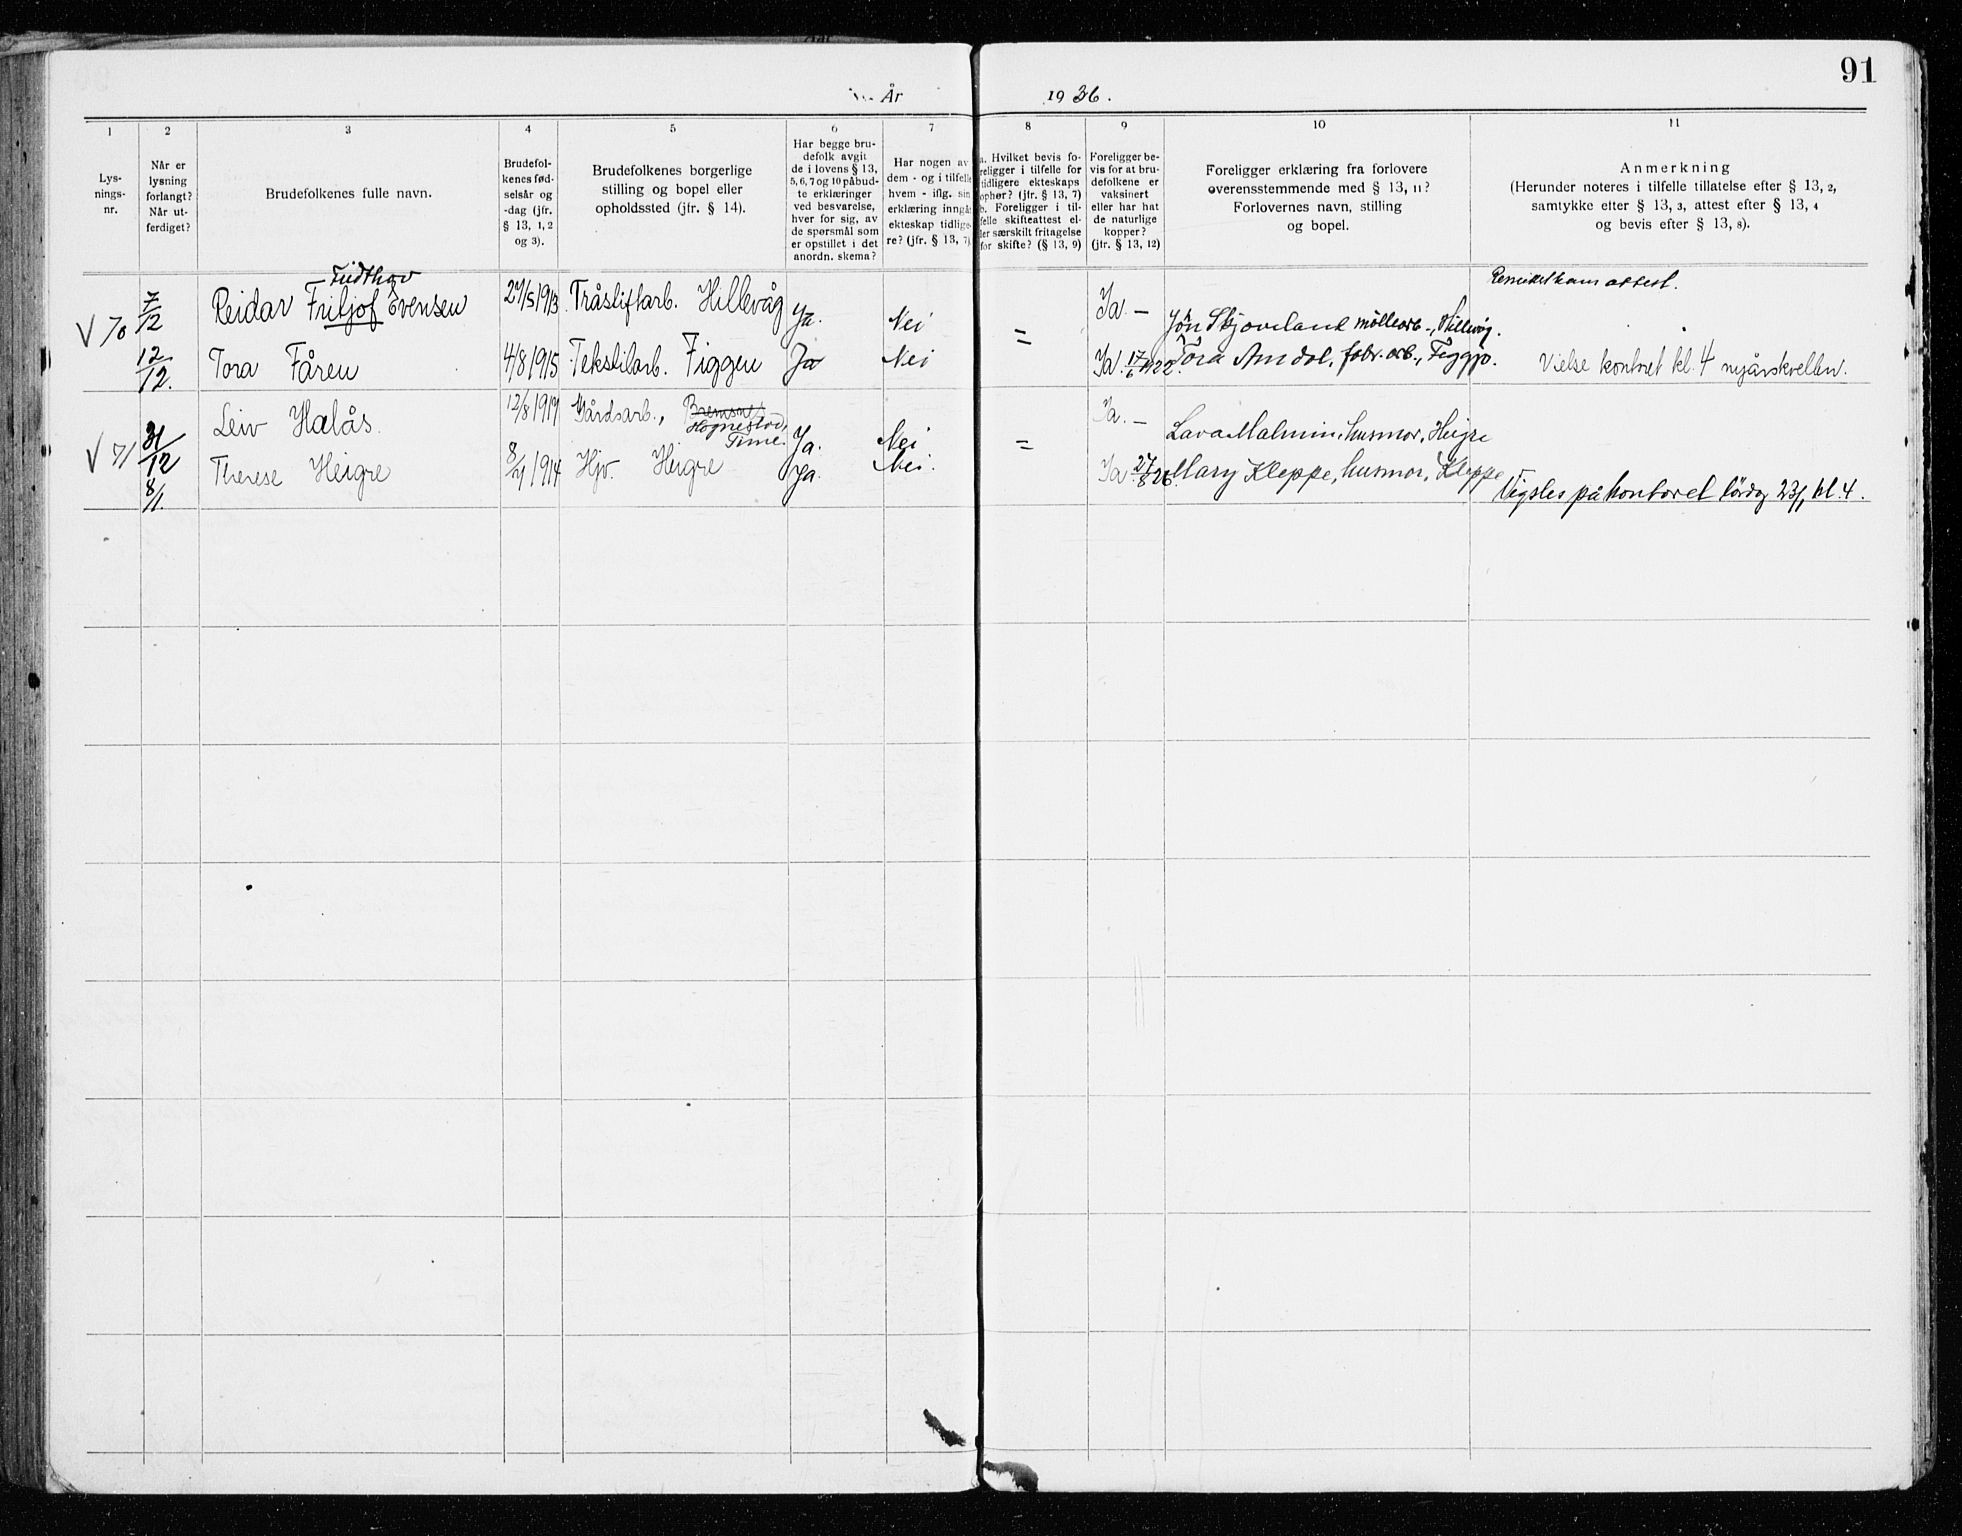 91
År 1936.
1 2 3 4 5 6 7 8 9 10 11
Lys-
nings-
nr.
Når er
lysning
forlangt?
Når ut-
ferdiget?
Brudefolkenes fulle navn.
Brudefol-
kenes fød-
selsår og
-dag (jfr.
§ 13, 1, 2
og 3).
Brudefolkenes borgerlige
stilling og bopel eller
opholdssted (jfr. § 14).
Har begge bru-
defolk avgit
de i lovens § 13,
5, 6, 7 og 10 påbud-
te erklæringer
ved besvarelse,
hver for sig, av
de spørsmål som
er opstillet i det
anordn. skema?
Har nogen av
dem - og i tilfelle
hvem - iflg. sin
erklæring inngåt
ekteskap tidlige-
re? (jfr. § 13, 7).
a. Hvilket bevis fo-
religger i tilfelle for
tidligere ekteskaps
ophør? (jfr. § 13, 7)
b. Foreligger i til-
felle skifteattest el-
ler særskilt fritagelse
for skifte? (§ 13, 9)
Foreligger be-
vis for at bru-
defolkene er
vaksinert
eller har hat
de naturlige
kopper?
(jfr. § 13, 12)
Foreligger erklæring fra forlovere
overensstemmende med § 13, 11?
Forlovernes navn, stilling
og bopel.
Anmerkning
(Herunder noteres i tilfelle tillatelse efter § 13, 2,
samtykke efter § 13, 3, attest efter § 13, 4
og bevis efter § 13, 8).
V 70 7/12 Reidar Fritjof Evensen 27/5 1913. Tråsliftarb. Hillevåg Ja. Nei = Ja. — Jôn Skjoveland mölleorb-, Hillevåg.
12/12. Tora Fåren 4/8 1915. Tekstilarb. Figgen Ja Nei Ja. 17/6 1922. Tora Amdal, fabr. arb., Figgjo. Vielse kontoret kl. 4 nyårskvelden.
V 71 31/12 Leiv Halås. 12/8 1917 Gårdsarb., Bremsnes
Hognestad,
Time. Ja. Nei = Ja. — Lava Malmin, husmor, Heigre
8/1. Therese Heigre 1914 Hjv. Heigre Ja. Nei. Ja 27/8 26. Mary Kleppe, husmor, Kleppe
Vigsles på kontoret lördag 23/1 kl. 4.